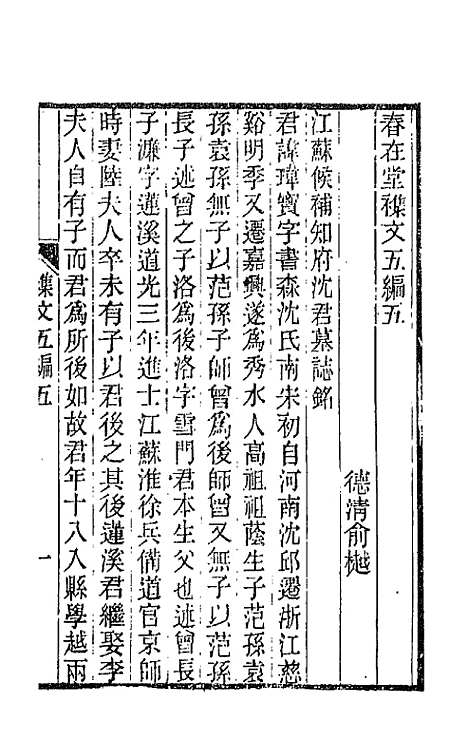 春在堂襍文五編五
德清俞樾
江蘇候補知府沈君墓誌銘
君諱瑋寶字書森沈氏南宋初自河南沈邱遷浙江慈
谿明季又遷嘉興遂為秀水人高祖祖蔭生子范孫袁
孫袁孫無子以范孫子師曾為後師曾又無子以范孫
長子述曾之子洛為後洛字雪門君本生父也述曾長
子濂字蓮溪道光三年進士江蘇淮徐兵備道官京師
時妻陸夫人卒未有子以君後之其後蓮溪君繼娶李
夫人自有子而君為所後如故君年十八入縣學越兩
襍文五編五
一